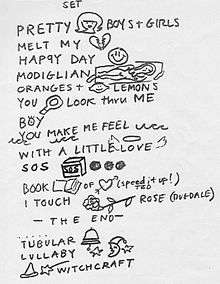 SET
PRETTY BOYS + GIRLS
MELT MY
HAPPY DAY
MODIGLIAN
ORANGES + LEMONS
YOU LOOK thru ME
BOY
YOU MAKE ME FEEL
WITH A LITTLE LOVE
SOS
BOOK OF (speed it up!)
I TOUCH ROSE (DUGDALE)
— THE END —
.....
TUBULAR
LULLABY
WITCHCRAFT